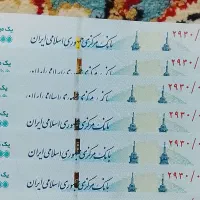 بانک مرکزی جمهوری اسلامی ایران
۲۹۳۰/۰
بانک مرکزی جمهوری اسلامی ایران
۲۹۳۰/۰
بانک مرکزی جمهوری اسلامی ایران
۲۹۳۰/۰
بانک مرکزی جمهوری اسلامی ایران
۲۹۳۰/۰
بانک مرکزی جمهوری اسلامی ایران
۲۹۳۰/۰
بانک مرکزی جمهوری اسلامی ایران
۲۹۳۰/۰